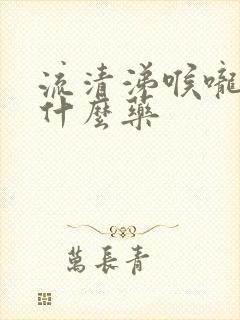 流清涕喉嚨
什麼藥
萬長青